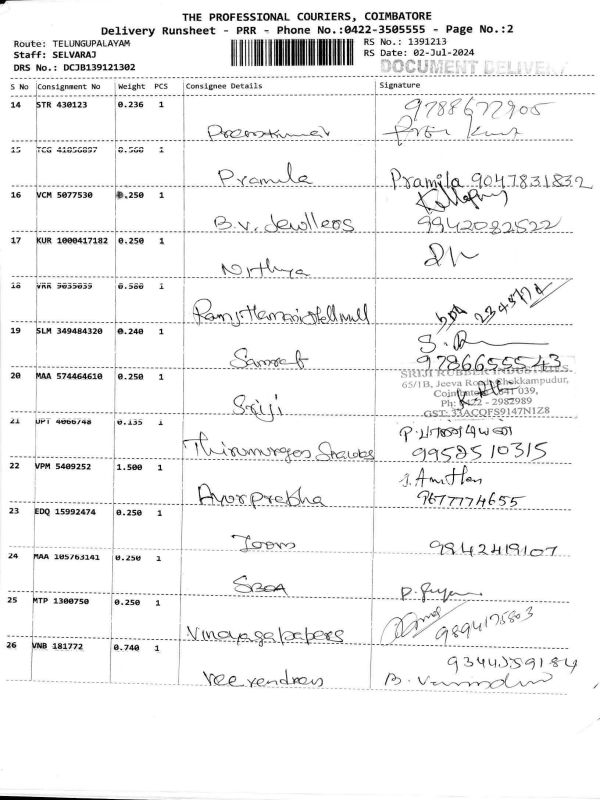 THE PROFESSIONAL COURIERS, COIMBATORE
Delivery Runsheet - PRR - Phone No.:0422-3505555 - Page No.:2
Route: TELUNGUPALAYAM
RS No.: 1391213
Staff: SELVARAJ
RS Date: 02-Jul-2024
DRS No.: DCJB139121302
DOCUMENT DELIVERY
S No Consignment No Weight PCS Consignee Details Signature
14 STR 430123 0.236 1
9788677905
Premkumar
15 TCG 41856897 0.560 1
Pramila
Pramila 9047831832
16 VCM 5077530 0.250 1
B.V. Jewllers
9942082522
17 KUR 1000417182 0.250 1
Nithya
18 VRR 9035039 0.580 1
19 SLM 349484320 0.240 1
9786655543
20 MAA 574464610 0.250 1
SRIJI RUBBER INDUSTRIES
65/1B, Jeeva Road, Chokkampudur,
Coimbatore - 641 039,
Ph: 0422 - 2982989
GST: 33ACQFS9147N1Z8
Sriji
21 UPT 4066748 0.135 1
9952510315
22 VPM 5409252 1.500 1
9677774655
23 EDQ 15992474 0.250 1
9842419107
24 MAA 105763141 0.250 1
SBOA
25 MTP 1300750 0.250 1
Vinayagapapers
9894175803
26 VNB 181772 0.740 1
9344259184
Veerendren